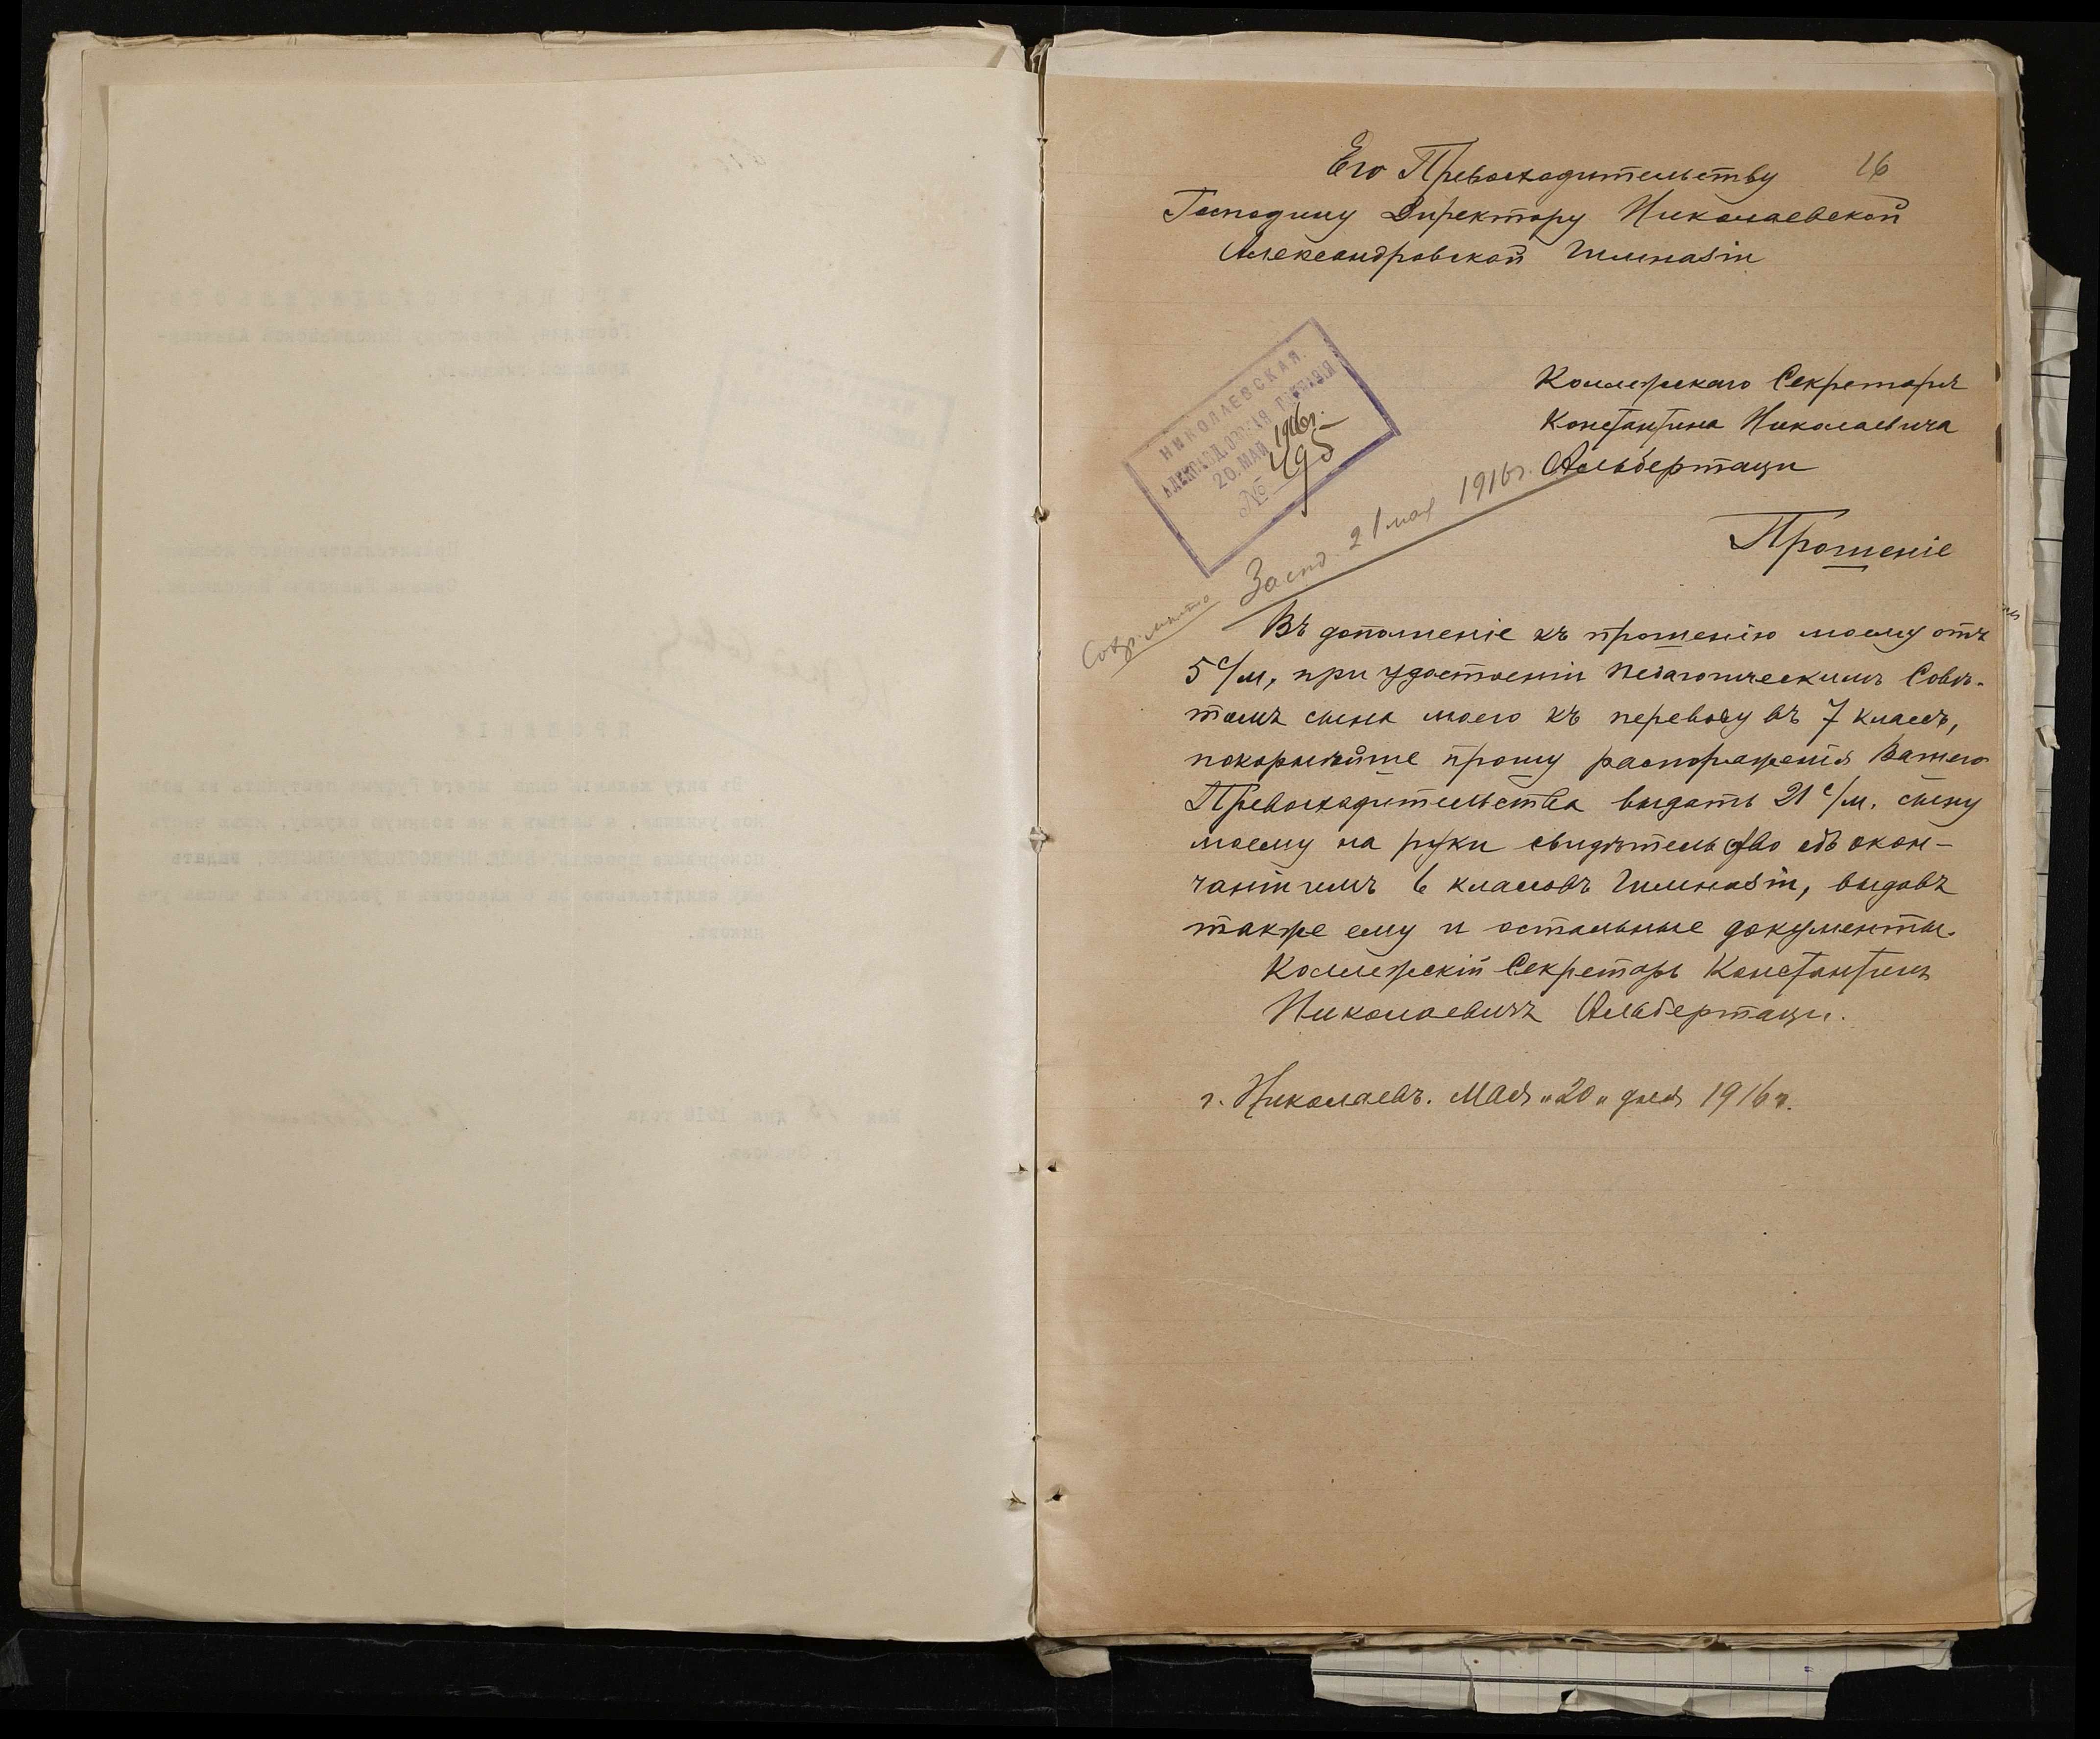 16
Его Превосходительству
Господину Директору Николаевской
Александровской Гимназіи
НИКОЛАЕВСКАЯ
АЛЕКСАНДРОВСКАЯ ГИМНАЗІЯ
20. МАЙ 1916г.
№ 495
Коллежскаго Секретаря
Константина Николаевича
Альбертаци
21 мая 1916г.
Прошеніе
Въ дополненіе къ прошенію моему отъ
5 с/м, при удостоеніи Педагогическимъ Совѣ-
томъ сына моего къ переводу въ 7 классъ,
покорнѣйше прошу распоряженія Вашего
Превосходительства выдать 21 с/м. сыну
моему на руки свидѣтельство объ окон-
чаніи имъ 6 классовъ Гимназіи, выдавъ
также ему и остальные документы.
Коллежскій Секретарь Константинъ
Николаевичъ Альбертаци.
г. Николаевъ. Мая "20" дня 1916г.